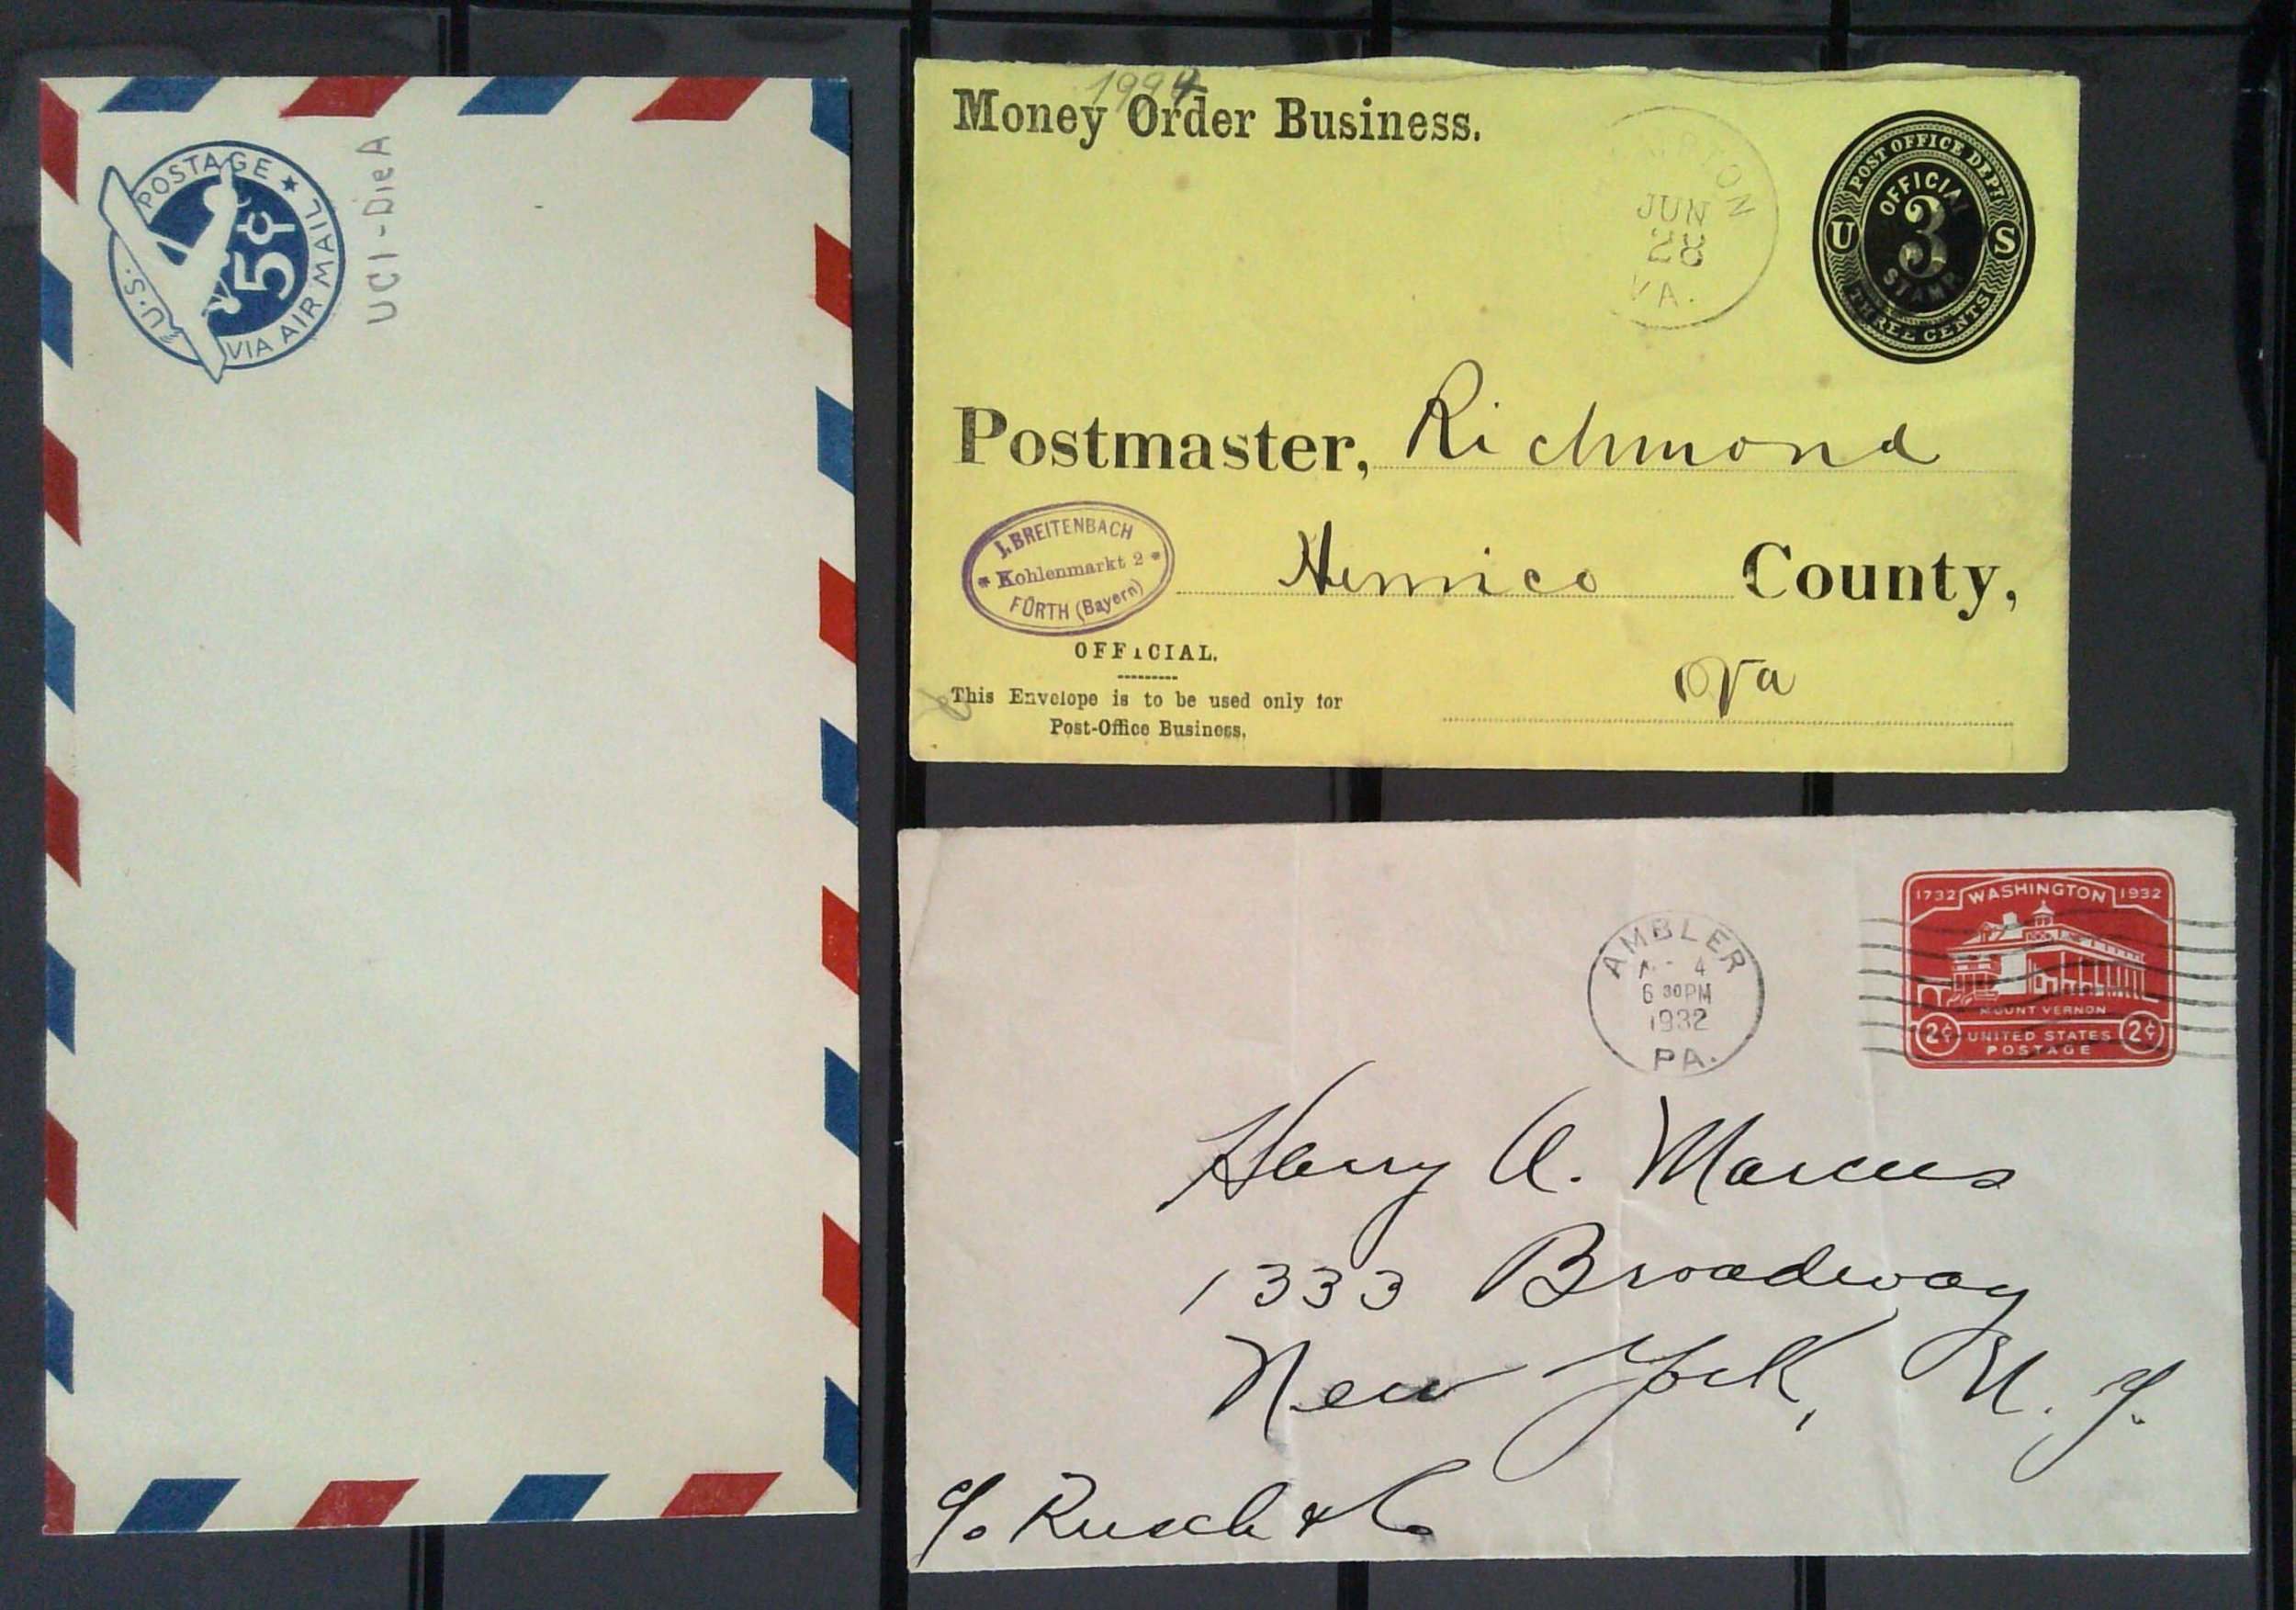 U.S. POSTAGE ★ VIA AIR MAIL
5¢
UC1-Die A
1994
Money Order Business.
JUN
28
VA.
POST OFFICE DEPT
U S
OFFICIAL
3
STAMP
THREE CENTS
Postmaster, Richmond
J. BREITENBACH
* Kohlenmarkt 2 *
FÜRTH (Bayern)
Henrico County,
OFFICIAL.
Va
This Envelope is to be used only for
Post-Office Business.
AMBLER
4
6 30 PM
1932
PA.
1732 WASHINGTON 1932
MOUNT VERNON
2¢ UNITED STATES 2¢
POSTAGE
Harry A. Marcus
1333 Broadway
New York, N. Y.
c/o Rusch & Co